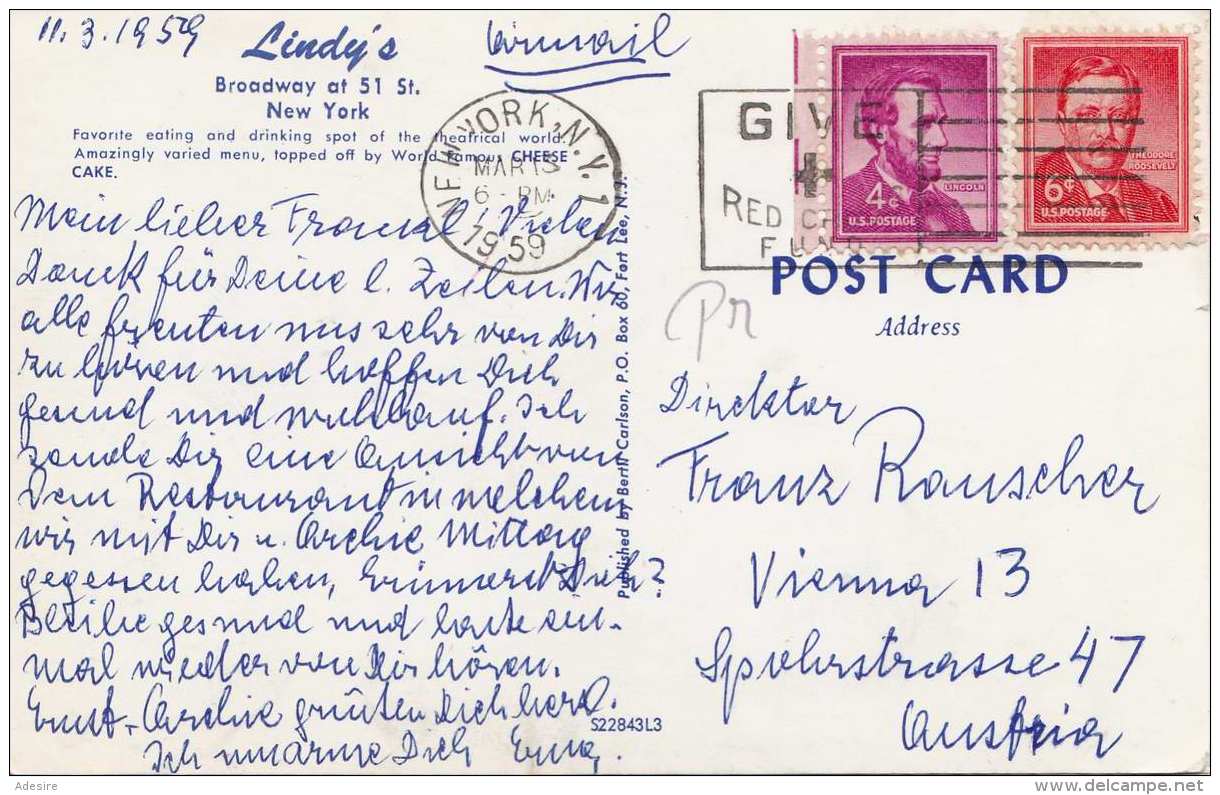 11.3.1959
Lindy's
Broadway at 51 St.
New York
Favorite eating and drinking spot of the theatrical world.
Amazingly varied menu, topped off by World famous CHEESE
CAKE.
airmail
NEW YORK, N.Y. 1
MAR 13
6 - PM
1959
GIVE
RED CR
FUND
4¢
LINCOLN
U.S. POSTAGE
6¢
THEODORE
ROOSEVELT
U.S. POSTAGE
Mein lieber Franzl! Vielen
Dank für Deine l. Zeilen. Wir
alle freuten uns sehr von Dir
zu hören und hoffen Dich
gesund und wohlauf. Ich
sende Dir eine Ansicht von
dem Restaurant in welchem
wir mit Dir u. Archie Mittag
gegessen haben, Erinnerst Dich?
Bleibe gesund und lasse ein-
mal wieder von Dir hören.
Ernst, Archie grüßen Dich herzl.
Ich umarme Dich Erna.
Published by Bertil Carlson, P.O. Box 60, Fort Lee, N.J.
S22843L3
POST CARD
Address
Pr
Direktor
Franz Rauscher
Vienna 13
Spohrstrasse 47
Austria
Adesire
delcampe.net